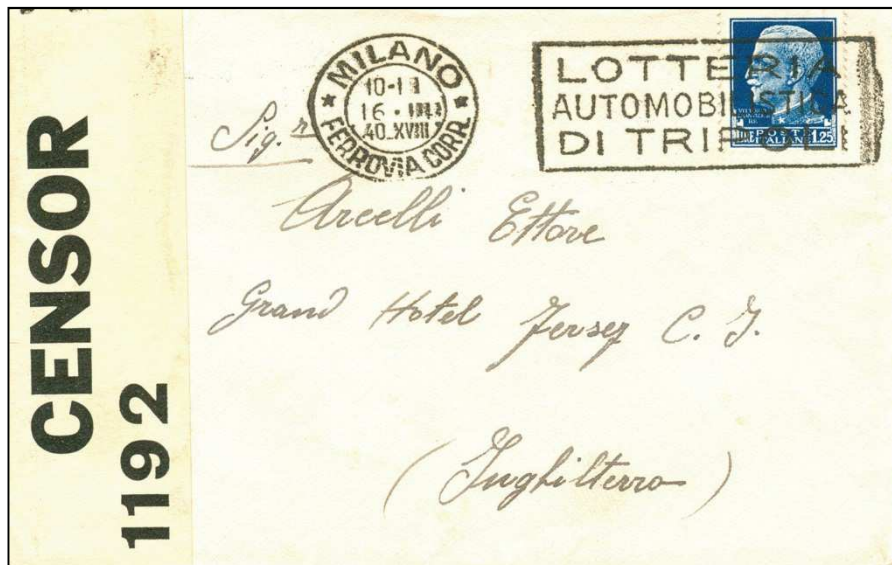 CENSOR
1192
MILANO
10-1
16 · III
40.XVIII
FERROVIA CORR.
LOTTERIA
AUTOMOBILISTICA
DI TRIPOLI
POSTE
ITALIANE
1.25
Sig.r
Arcelli Ettore
Grand Hotel Jersey C. I.
(Inghilterra)